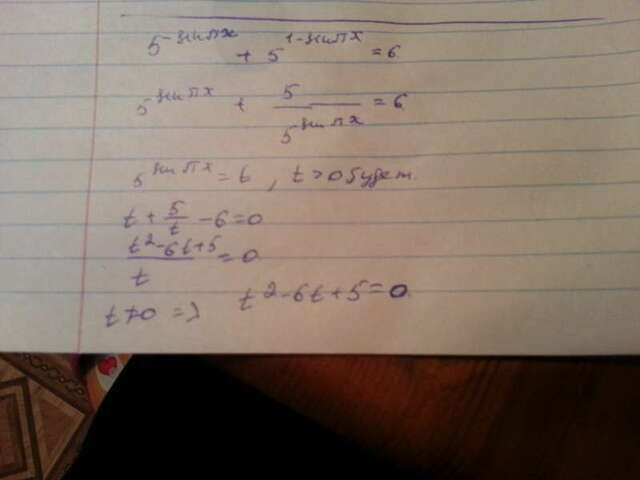 5^{-sin πx} + 5^{1-sin πx} = 6
5^{sin πx} + \frac{5}{5^{sin πx}} = 6
5^{sin πx} = t, t > 0 будет.
t + \frac{5}{t} - 6 = 0
\frac{t^2 - 6t + 5}{t} = 0
t ≠ 0 => t^2 - 6t + 5 = 0